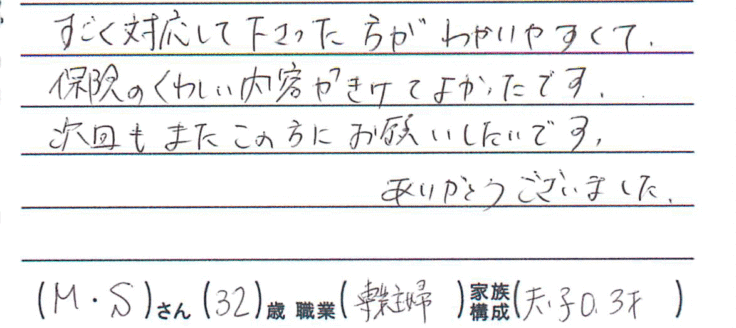 すごく対応して下さった方がわかりやすくて、
保険のくわしい内容がきけてよかったです。
次回もまたこの方にお願いしたいです。
ありがとうございました。
(M・S)さん(32)歳 職業(専業主婦)家族構成(夫、子0.3才)